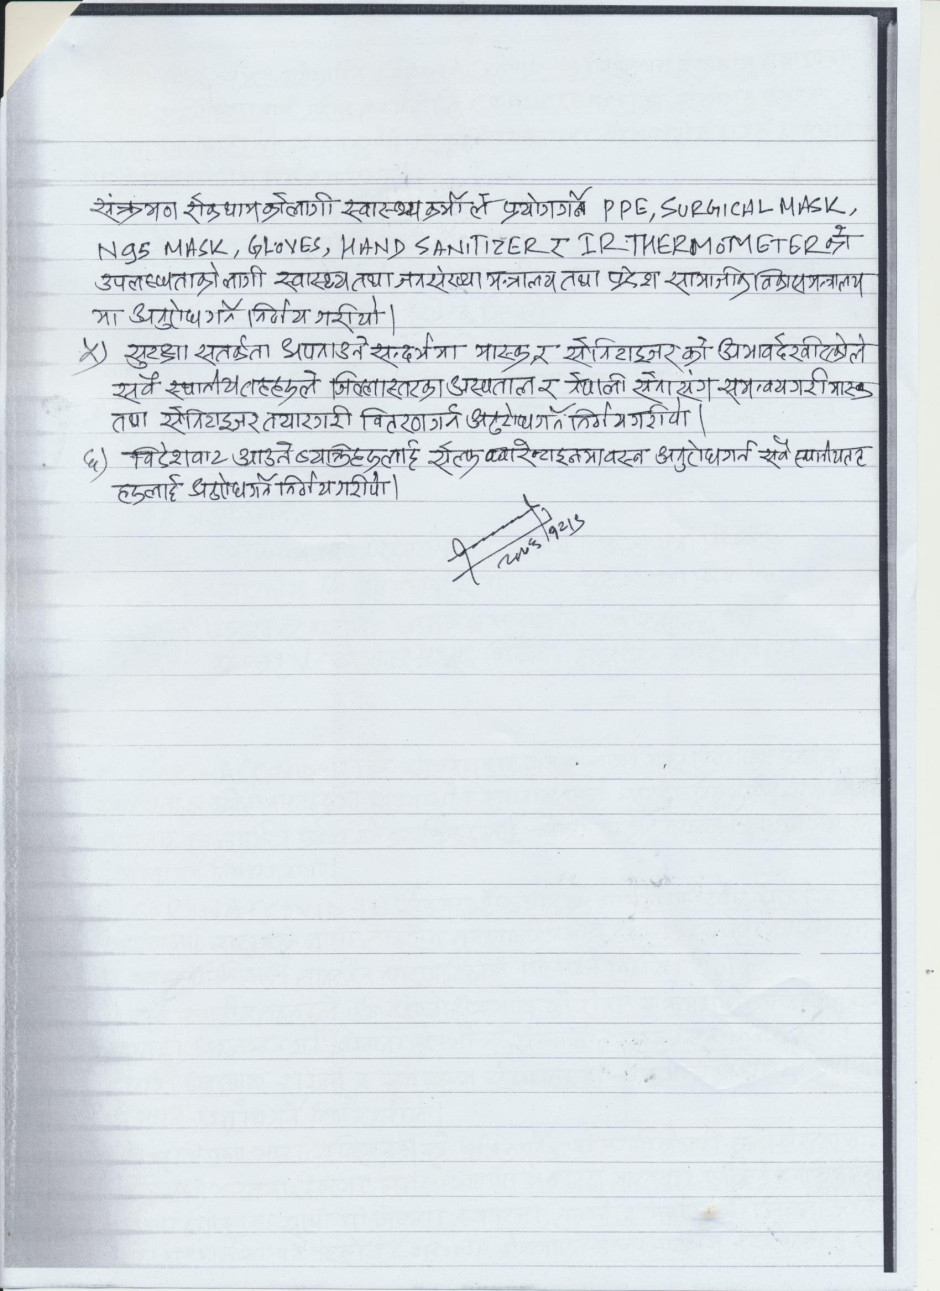 संक्रमण रोकथामकोलागी स्वास्थ्यकर्मीले प्रयोगगर्ने PPE, SURGICAL MASK,
N95 MASK, GLOVES, HAND SANITIZER र IR THERMOMETER को
उपलब्धताकोलागी स्वास्थ्य तथा जनसंख्या मन्त्रालय तथा प्रदेश सामाजीक विकास मन्त्रालय
मा अनुरोध गर्ने निर्णय गरीयो।
५) सुरक्षा सतर्कता अपनाउने सन्दर्भमा मास्क र सेनिटाइजरको अभाव देखीएकोले
सवै स्थानीय तहहरुले जिल्लास्तरका अस्पताल र नेपाली सेना संग समन्वय गरी मास्क
तथा सेनिटाइजर तयार गरी वितरण गर्न अनुरोध गर्ने निर्णय गरीयो।
६) विदेशवाट आउने व्याक्तिहरुलाई सेल्फ क्वारेन्टाइनमा वस्न अनुरोध गर्न सवै स्थानीय तह
हरुलाई अनुरोध गर्ने निर्णय गरीयो।
२०७६/१२/५